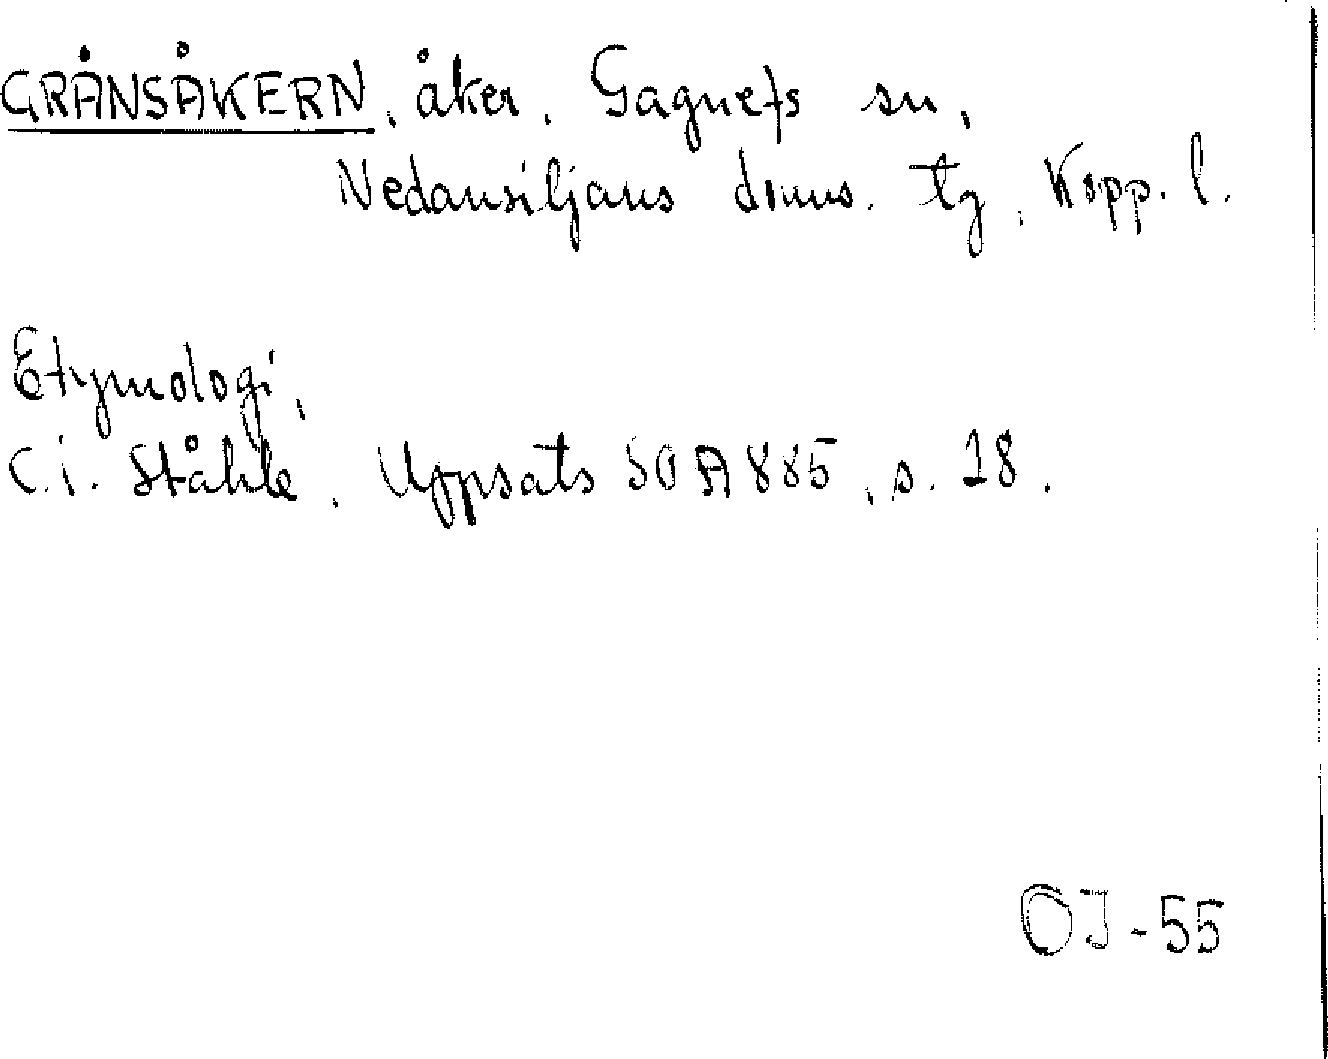 GRÅNSÅKERN, åker, Gagnefs sn,
Nedansiljans doms. tg, Kopp. l.
Etymologi,
C.I. Ståhle, Uppsats SOA 885, s. 18.
OJ-55